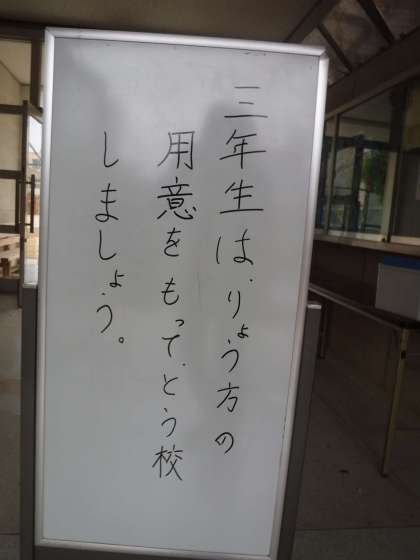 三年生は、りょう方の
用意をもって、とう校
しましょう。